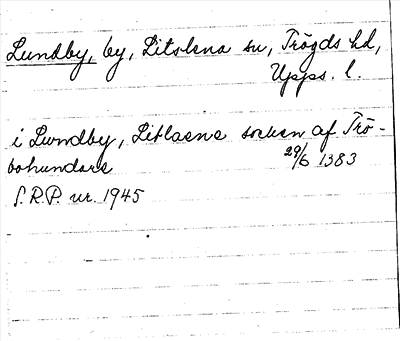 Lundby, by, Litslena sn, Trögds hd,
Upps. l.
i Lwndby, Litlaene soken af Trö-
bohundare 29/6 1383
S.R.P. nr. 1945